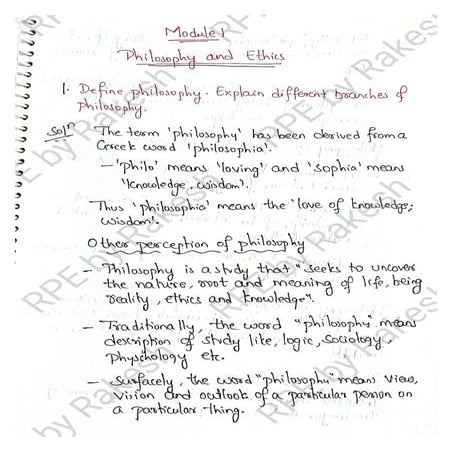 Module 1
Philosophy and Ethics
1. Define philosophy. Explain different branches of
Philosophy.
Solⁿ The term 'philosophy' has been derived from a
Greek word 'philosophia'.
– 'Philo' means 'loving' and 'sophia' means
'knowledge, wisdom'.
Thus 'philosophia' means the 'love of knowledge,
wisdom'.
Other perception of philosophy
– Philosophy is a study that "seeks to uncover
the nature, root and meaning of life, being
reality, ethics and knowledge".
– Traditionally, the word "philosophy" means
description of study like, logic, sociology,
Physchology etc.
– Surfacely, the word "philosophy" means view,
vision and outlook of a particular person on
a particular thing.
RPE by Rakesh
RPE by Rakesh
RPE by Rakesh
RPE by Rakesh
by Rakesh
by Rakesh